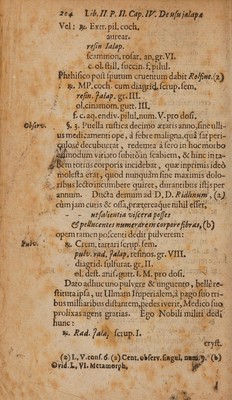 204 Lib. II P. II. Cap. IV. De usu jalapæ
Vel: ℞. Extr. pil. coch.
aurear.
resin Jalap.
scammon. rosat. an. gr. VI.
c. ol. still. succin. f. pilul.
Phthisico post sputum cruentum dabit Rolfinc. (2)
℞. MP. coch. cum diagrid. scrup. sem.
resin. jalap. gr. III.
ol. cinamom. gutt. III.
f. c. aq. endiv. pilul. num. V. pro dosi.
Observ. §. 3. Puella rustica decimo ætatis anno, sine ulli-
us medicamenti ope, à febre maligna, quâ sat peri-
culose decubuerat, redemta à sero in hoc morbo
admodum vitiato subitò in scabiem, & hinc in ta-
bem totius corporis incidebat, quæ inprimis ideò
molesta erat, quod nunquàm sine maximis dolo-
ribus lecto incumbere quiret, durantibus istis per
annum. Ducta demum ad D. D. Ridlinum, (a)
cùm jam cutis & ossa, prætereaque nihil esset,
ut salientia viscera posses
& pellucentes numerare in corpore fibras, (b)
opem tamen poscenti dedit pulverem:
Pulv. ℞. Crem. tartari scrup. sem.
pulv. rad. jalap. resinos. gr. VIII.
diagrid. sulfurat. gr. II.
ol. dest. anis. gutt. I. M. pro dosi.
Dato adhuc uno pulvere & unguento, bellè re-
stituta ipsa, ut Ulmam Imperialem, à pago suo tri-
bus milliaribus distantem, pedes iverit, Medico suo
prolixas agens gratias. Ego Nobili militi dedi
hunc:
℞. Rad. Jala, scrup. I.
cryst.
(2) L. V. cons. 6. (a) Cent. observ. singul. num. (b)
Ovid. L. VI. Metamorph.